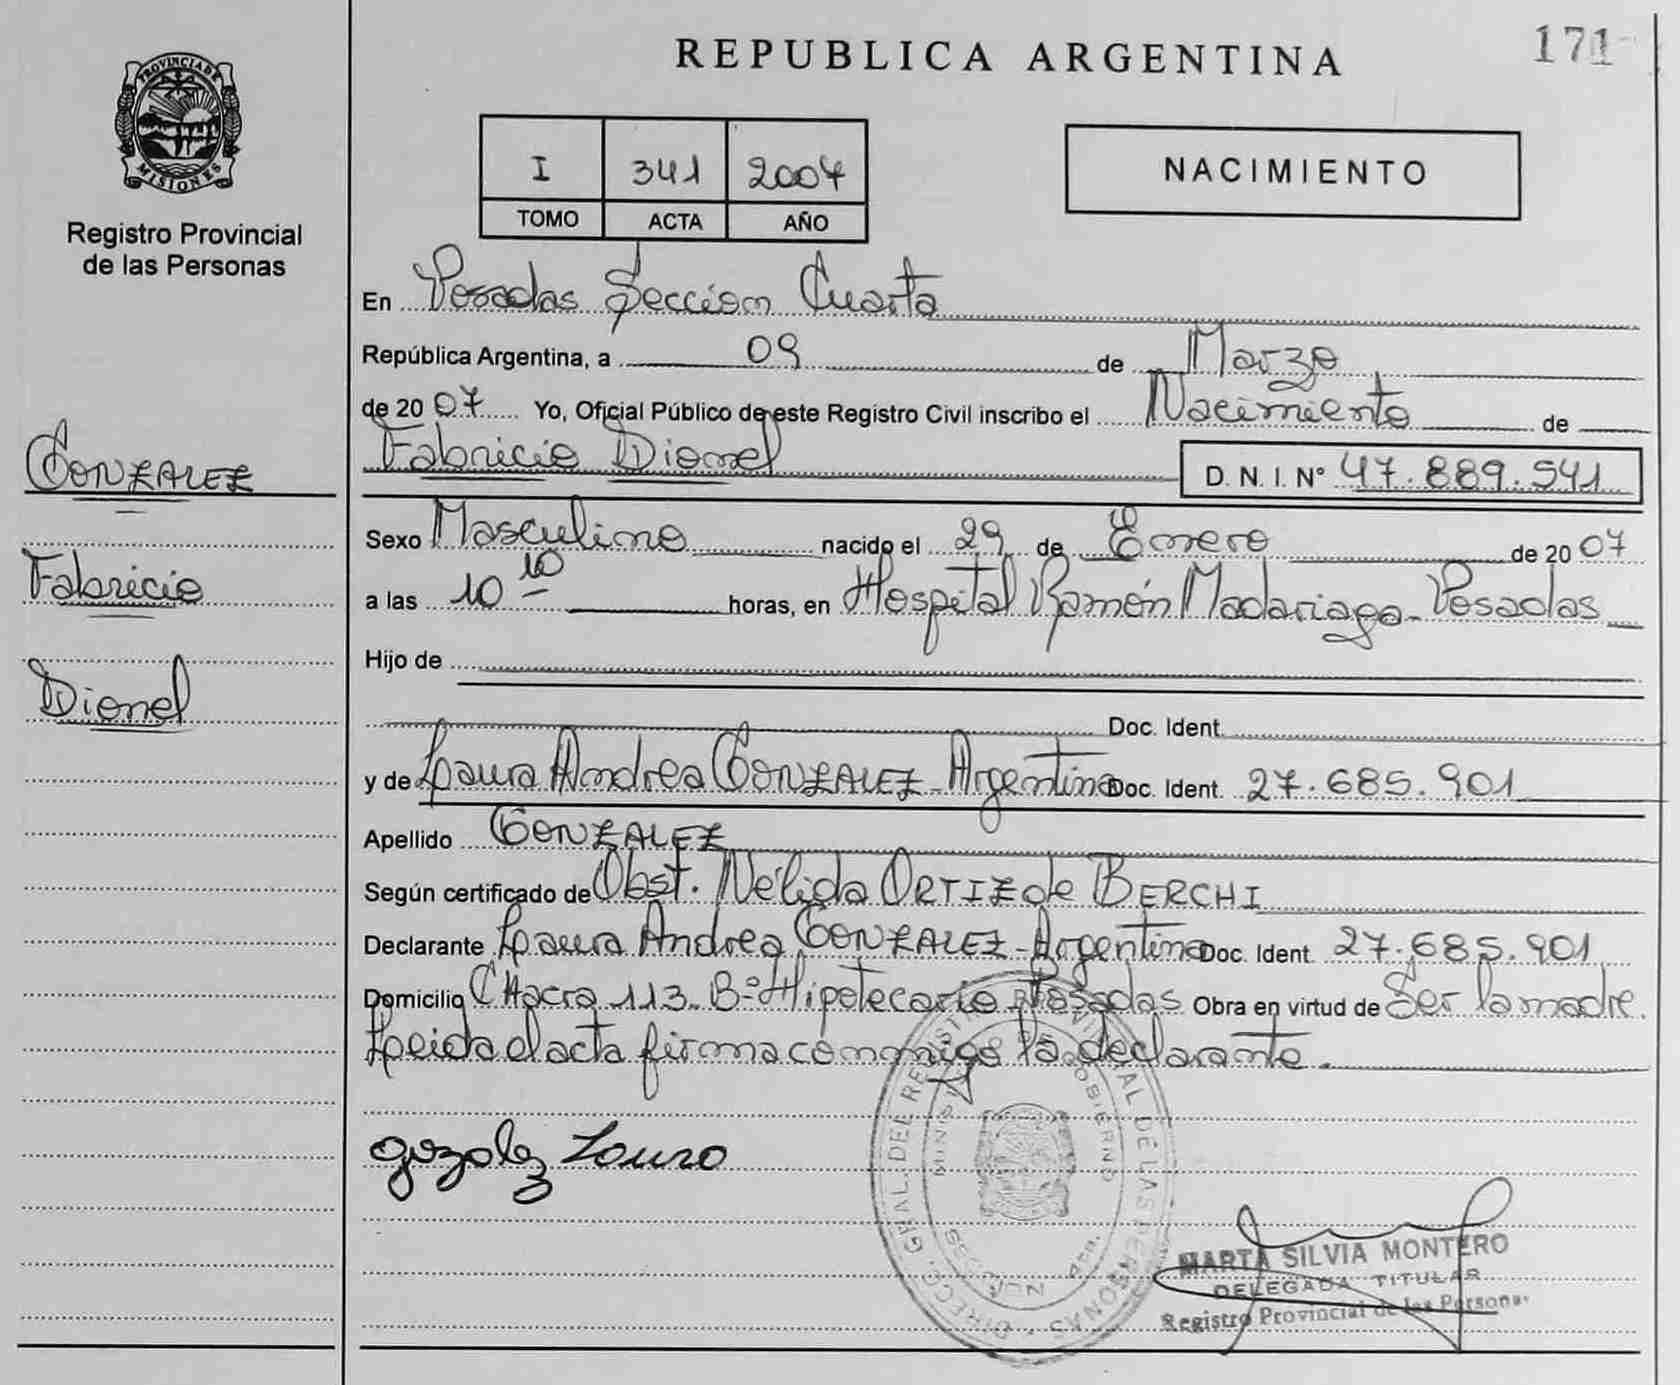 171
REPUBLICA ARGENTINA
PROVINCIA DE
MISIONES
Registro Provincial
de las Personas
I 341 2007
TOMO ACTA AÑO
NACIMIENTO
En Posadas Sección Cuarta
República Argentina, a 09 de Marzo
de 20 07 Yo, Oficial Público de este Registro Civil inscribo el Nacimiento de
Fabricio Dionel D. N. I. N° 47.889.541
GONZALEZ
Fabricio
Dionel
Sexo Masculino nacido el 29 de Enero de 20 07
a las 10 10 horas, en Hospital Ramón Madariaga - Posadas
Hijo de
Doc. Ident.
y de Laura Andrea GONZALEZ - Argentina Doc. Ident. 27.685.901
Apellido GONZALEZ
Según certificado de Obst. Nélida ORTIZ de BERCHI
Declarante Laura Andrea GONZALEZ - Argentina Doc. Ident 27.685.901
Domicilio CHacra 113 - B° Hipotecario - Posadas Obra en virtud de Ser la madre.
Leida el acta firma conmigo la declarante.
gozalez Laura
DIRECC. GRAL. DEL REGISTRO PROVINCIAL DE LAS PERSONAS
GOBIERNO
MARTA SILVIA MONTERO
DELEGADA TITULAR
Registro Provincial de las Personas